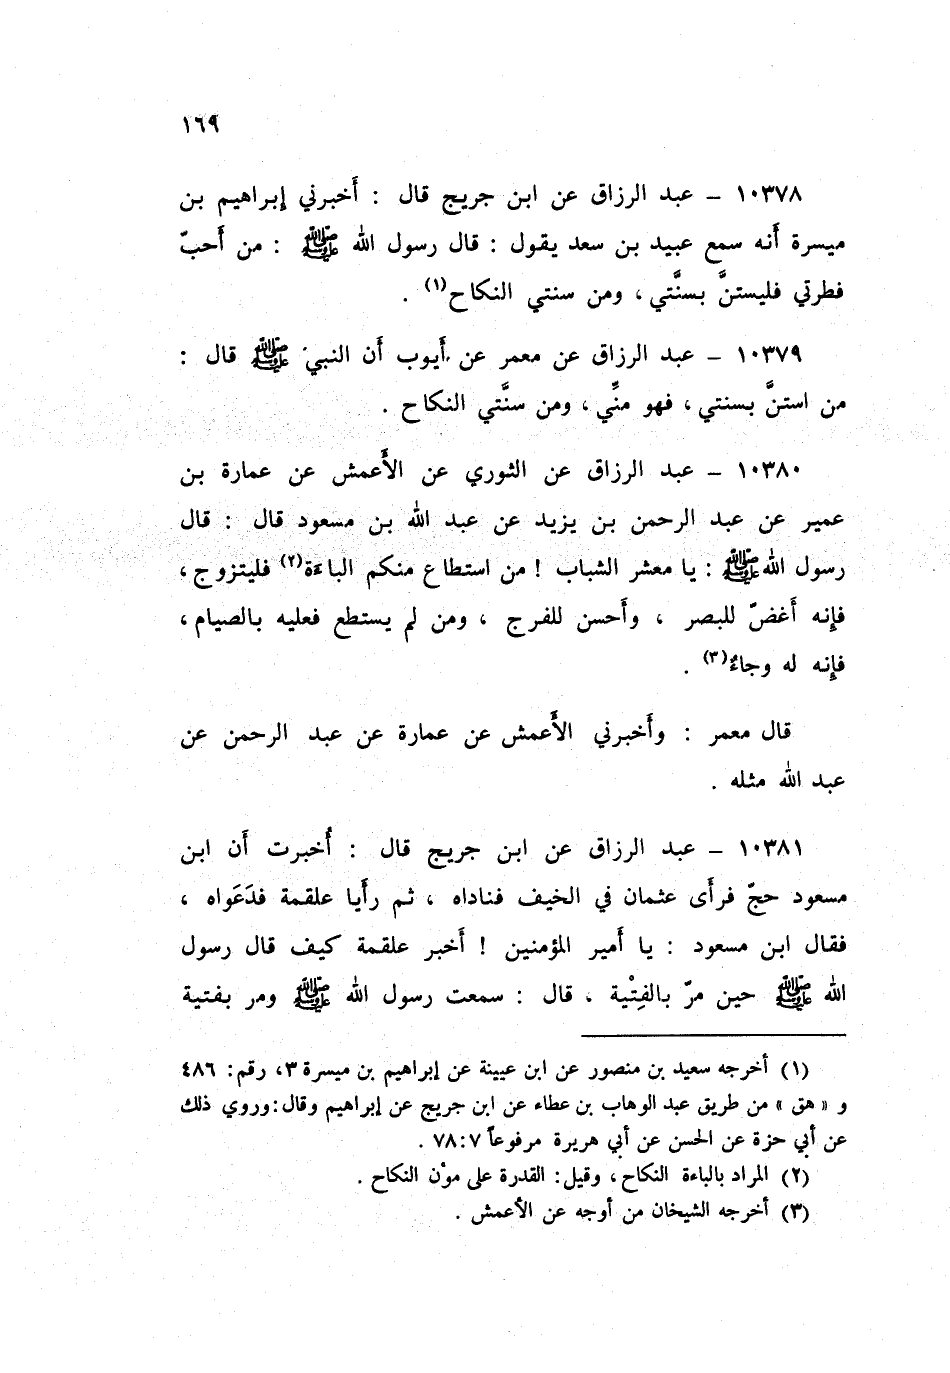 ١٦٩
١٠٣٧٨ – عبد الرزاق عن ابن جريج قال : أَخبرني إبراهيم بن
ميسرة أَنه سمع عبيد بن سعد يقول : قال رسول الله ﷺ : من أَحبّ
فطرتي فليستنَّ بسنَّتي ، ومن سنتي النكاح(١) .
١٠٣٧٩ – عبد الرزاق عن معمر عن أَيوب أَن النبي ﷺ قال :
من استنَّ بسنتي ، فهو منِّي ، ومن سنَّتي النكاح .
١٠٣٨٠ – عبد الرزاق عن الثوري عن الأَعمش عن عمارة بن
عمير عن عبد الرحمن بن يزيد عن عبد الله بن مسعود قال : قال
رسول الله ﷺ : يا معشر الشباب ! من استطاع منكم الباءة(٢) فليتزوج ،
فإِنه أَغضّ للبصر ، وأَحسن للفرج ، ومن لم يستطع فعليه بالصيام ،
فإِنه له وجاءٌ(٣) .
قال معمر : وأَخبرني الأَعمش عن عمارة عن عبد الرحمن عن
عبد الله مثله .
١٠٣٨١ – عبد الرزاق عن ابن جريج قال : أُخبرت أَن ابن
مسعود حجّ فرأَى عثمان في الخيف فناداه ، ثم رأَيا علقمة فدَعَواه ،
فقال ابن مسعود : يا أَمير المؤمنين ! أَخبر علقمة كيف قال رسول
الله ﷺ حين مرّ بالفِتْية ، قال : سمعت رسول الله ﷺ ومر بفتية
(١) أخرجه سعيد بن منصور عن ابن عيينة عن إبراهيم بن ميسرة ٣، رقم: ٤٨٦
و « هق » من طريق عبد الوهاب بن عطاء عن ابن جريج عن إبراهيم وقال: وروي ذلك
عن أبي حزة عن الحسن عن أبي هريرة مرفوعاً ٧:٧٨ .
(٢) المراد بالباءة النكاح ، وقيل: القدرة على موْن النكاح .
(٣) أخرجه الشيخان من أوجه عن الأعمش .